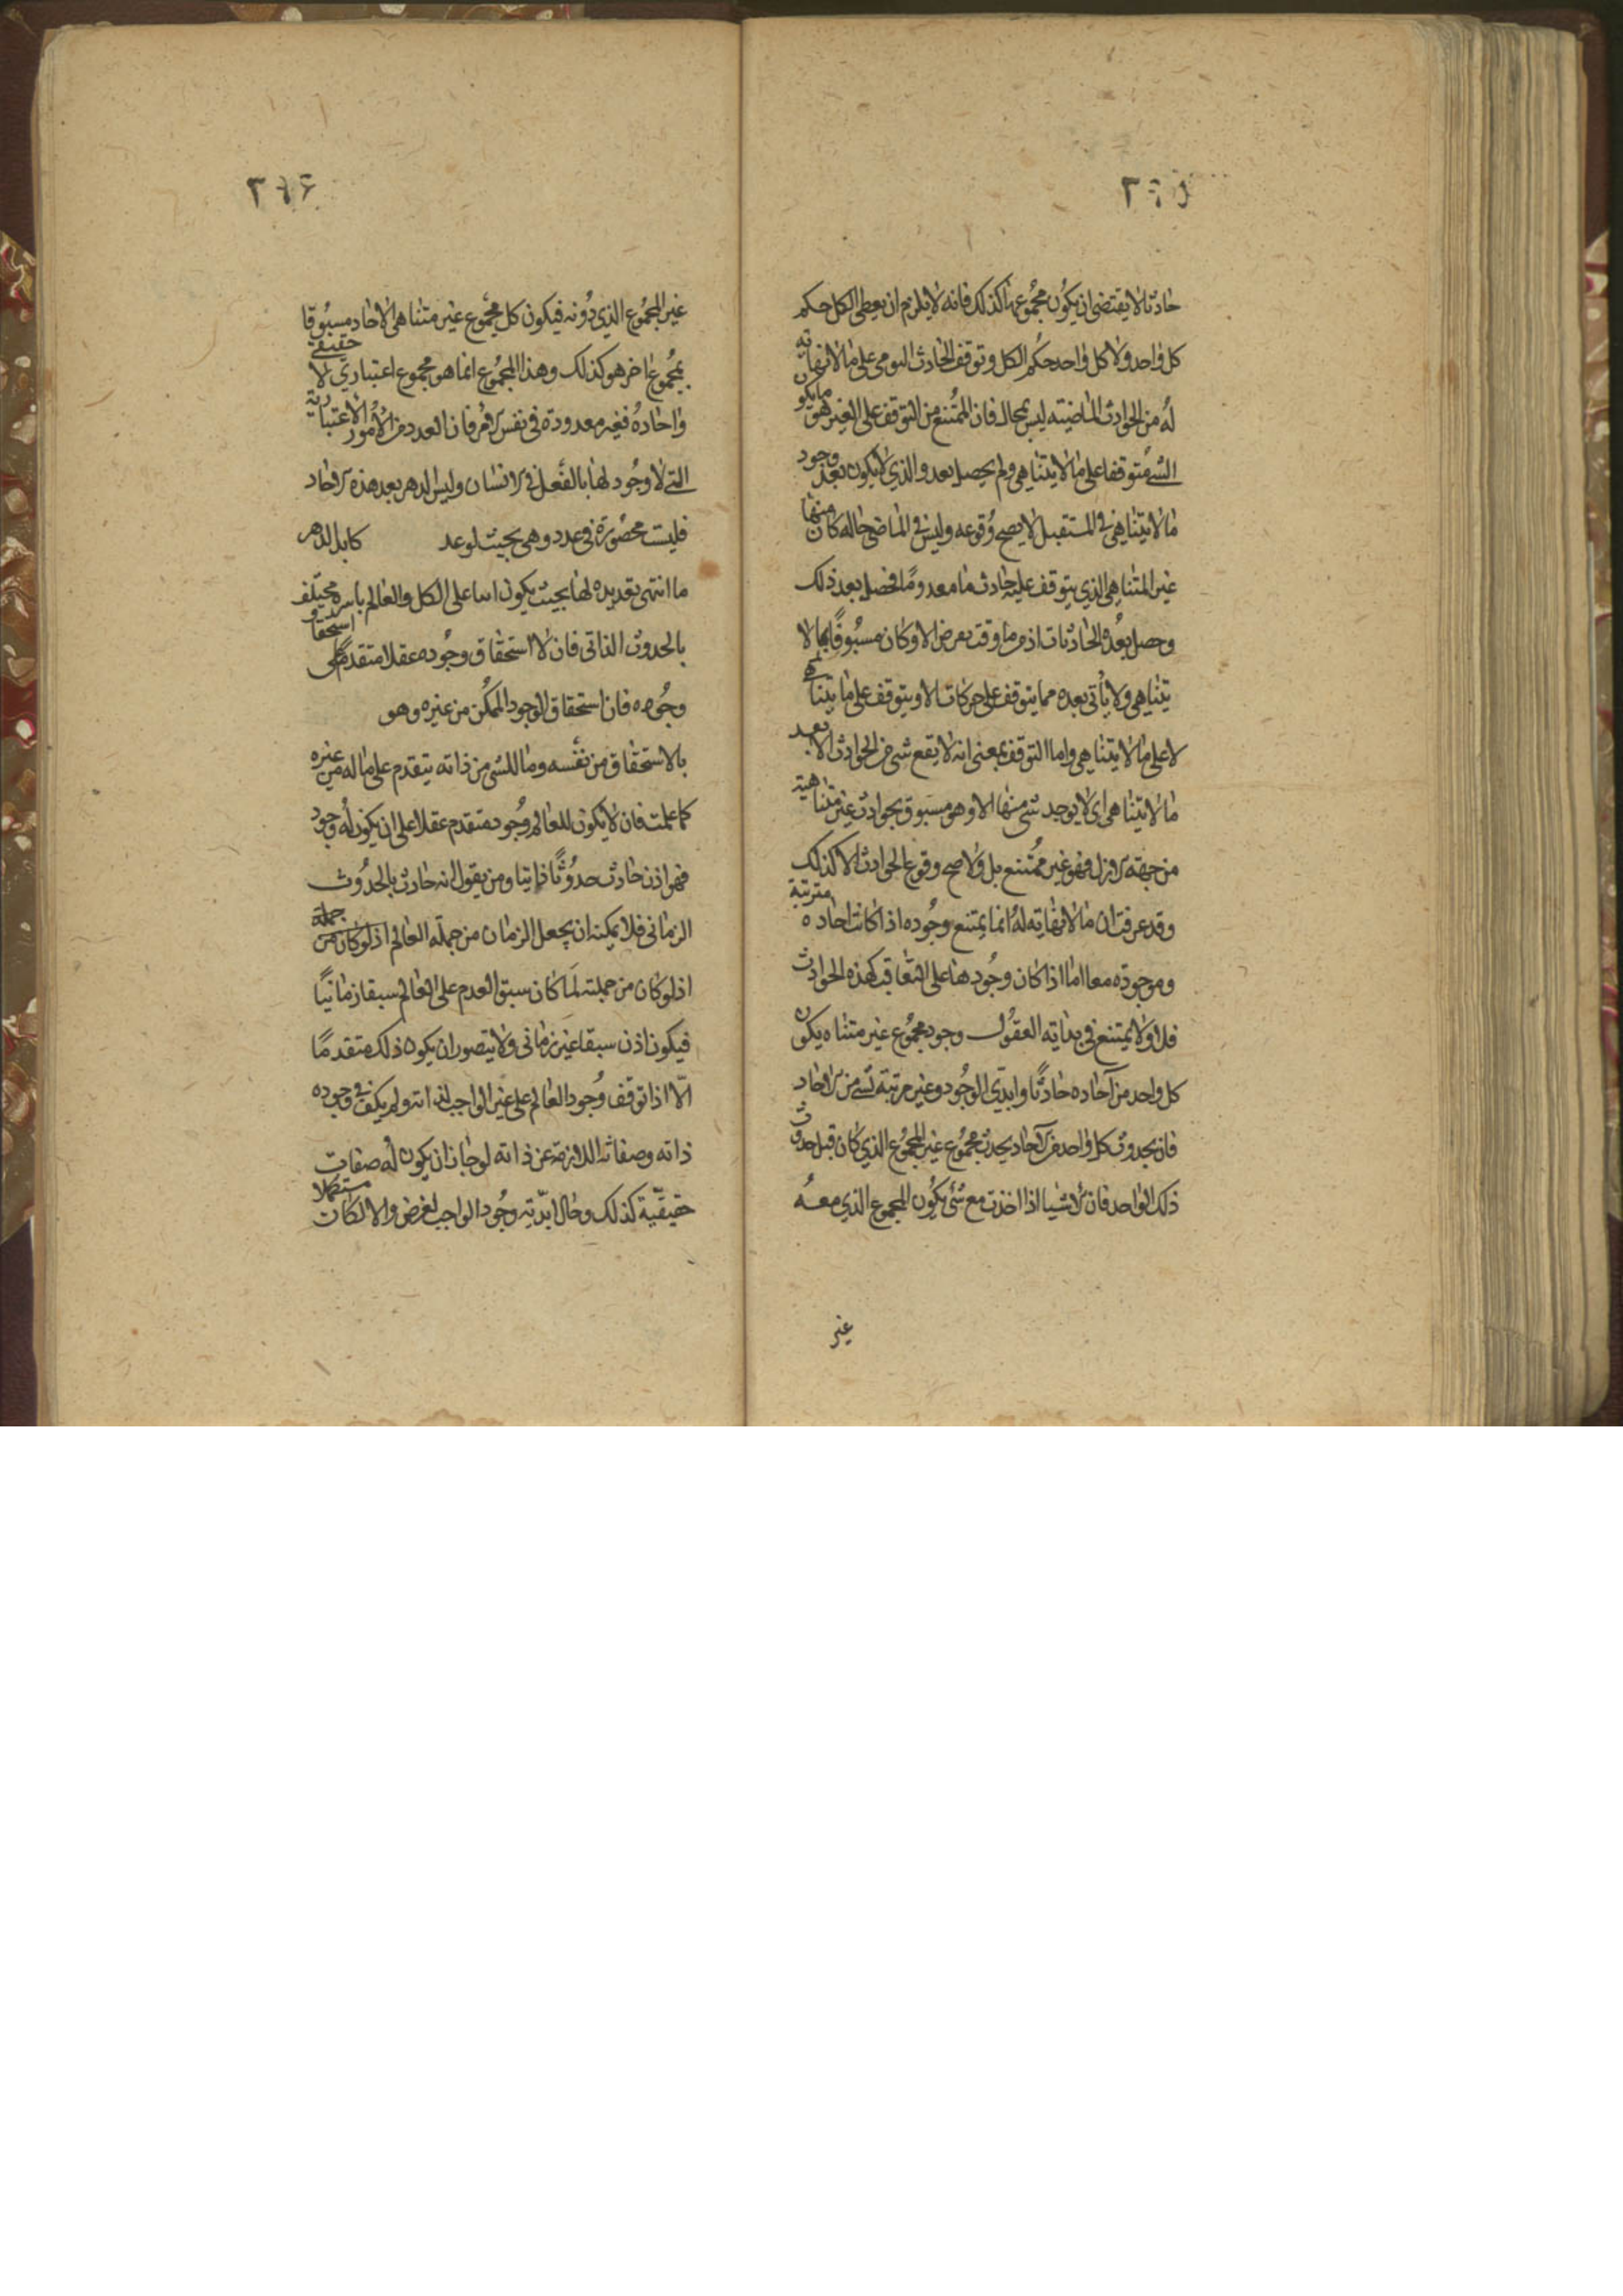 ٢٦٥
حادثا لا يقتضي ان يكون مجموعها كذلك فانه لا يلزم ان يعطى الكل حكم
كل واحد ولا كل واحد حكم الكل وتوقف الحادث اليومي على ما لا نهاية
له من الحوادث الماضيته ليس بمحال فان الممتنع من التوقف على الغير هو ما يكون
الشئ متوقفا على ما لا يتناهى ولم يحصل بعد والذي لا يكون بعد وجود
ما لا يتناهى في المستقبل لا يصح وقوعه وليس في الماضي حاله كان منها
غير المتناهي الذي يتوقف عليه حادث ما معدوما فحصل بعد ذلك
وحصل بعده الحادثات اذ ما من وقت يعرض الا وكان مسبوقا بما لا
يتناهى ولا يأتي بعده مما يتوقف على حركات الا ويتوقف على ما يتناهى
لا على ما لا يتناهى واما التوقف بمعنى انه لا يقع شي من الحوادث الا بعد
ما لا يتناهى اى لا يوجد شي منها الا وهو مسبوق بحوادث غير متناهية
من جهة الازل فهو غير ممتنع بل ولا صح وقوع الحوادث الا كذلك
وقد عرفت ان ما لا نهايته له انما يمتنع وجوده اذا كانت احاده مترتبة
وموجوده معا اما اذا كان وجودها على التعاقب كهذه الحوادث
فلا ولا يمتنع في بداية العقول وجود مجموع غير متناه يكون
كل واحد من آحاده حادثا وابدي الوجود وغير مرتبة لشئ من الاحاد
فان بحدوث كل واحد من الآحاد يحدث مجموع غير المجموع الذي كان قبل حدوث
ذلك الواحد فان الاشيا اذا اخذت مع شئ يكون المجموع الذي معه
غير
٢٦٦
غير المجموع الذي دونه فيكون كل مجموع غير متناهى الاحاد مسبوقا
بمجموع اخر هو كذلك وهذا المجموع انما هو مجموع اعتباري لا حقيقي
واحاده فغير معدودة في نفس الامر فان العدد من الامور الاعتبارية
التي لا وجود لها بالفعل في الانسان وليس الدهر بعد هذه الاحاد
فليست محصورة في عدد وهى بحيث لو عد كابد الدهر
ما انتهى تعديده لها بحيث يكون اسا على الكل والعالم باسره مختلف
بالحدوث الذاتى فان لا استحقاق وجوده عقلا متقدم على استحقاق
وجوده فان استحقاق الوجود الممكن من غيره وهو
بالاستحقاق من نفسه وما للشي من ذاته يتقدم على ما له من غيره
كما علمت فان لا يكون للعالم وجود متقدم عقلا على ان يكون له وجود
فهو اذن حادث حدوثا ذاتيا ومن يقول انه حادث بالحدوث
الزمانى فلا يمكنه ان يجعل الزمان من جملة العالم اذ لو كان من جملة
اذ لو كان من جملته لما كان سبق العدم على العالم سبقا زمانيا
فيكون اذن سبقا غير زمانى ولا يتصور ان يكون ذلك متقدما
الا اذا توقف وجود العالم على غير الواجب لذاته ولم يكف في وجوده
ذاته وصفاته اللازمة عن ذاته لو جاز ان يكون له صفات
حقيقية كذلك وحال ابدية وجود الواجب لغرض والا لكان مستكملا